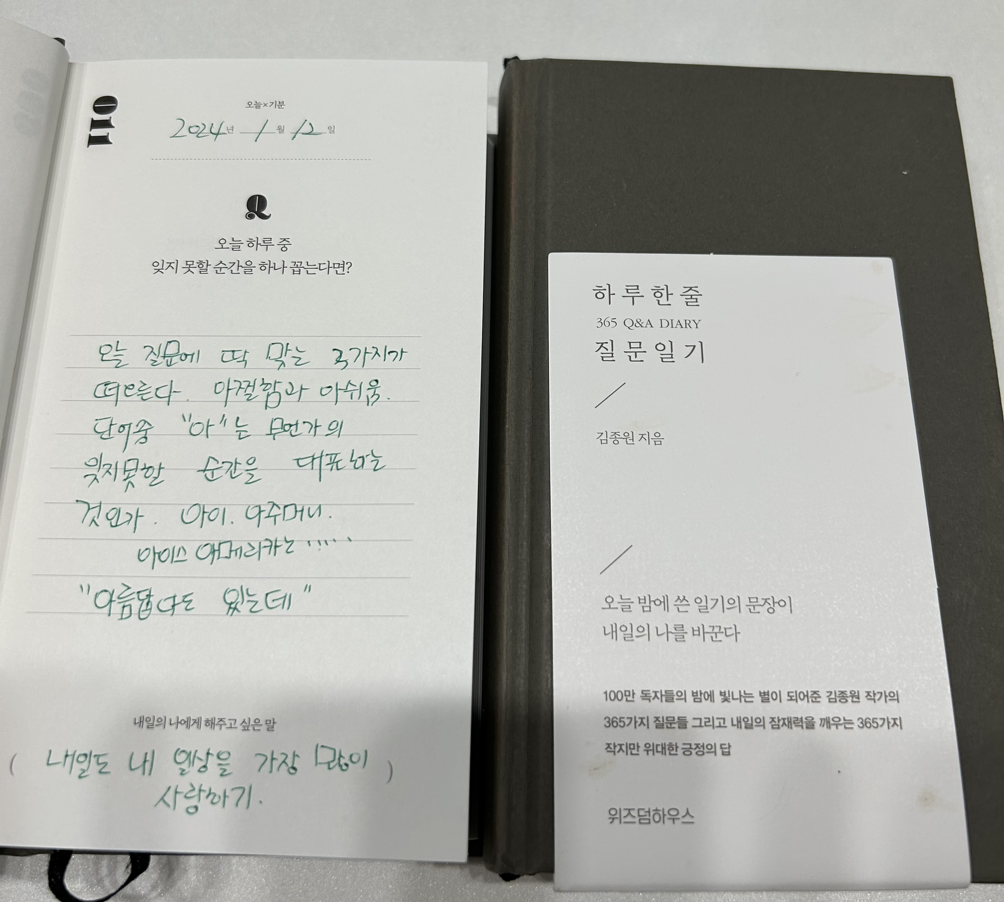 011
오늘×기분
2024년 1월 12일
Q
오늘 하루 중
잊지 못할 순간을 하나 꼽는다면?
오늘 질문에 딱 맞는 2가지가
떠오른다. 아찔함과 아쉬움.
단어중 "아"는 무언가의
잊지못할 순간을 대표하는
것인가. 아이. 아주머니.
아이스 아메리카노 ·····
"아름답다도 있는데"
내일의 나에게 해주고 싶은 말
( 내일도 내 일상을 가장 많이 )
사랑하기.
하루 한 줄
365 Q&A DIARY
질문일기
김종원 지음
오늘 밤에 쓴 일기의 문장이
내일의 나를 바꾼다
100만 독자들의 밤에 빛나는 별이 되어준 김종원 작가의
365가지 질문들 그리고 내일의 잠재력을 깨우는 365가지
작지만 위대한 긍정의 답
위즈덤하우스